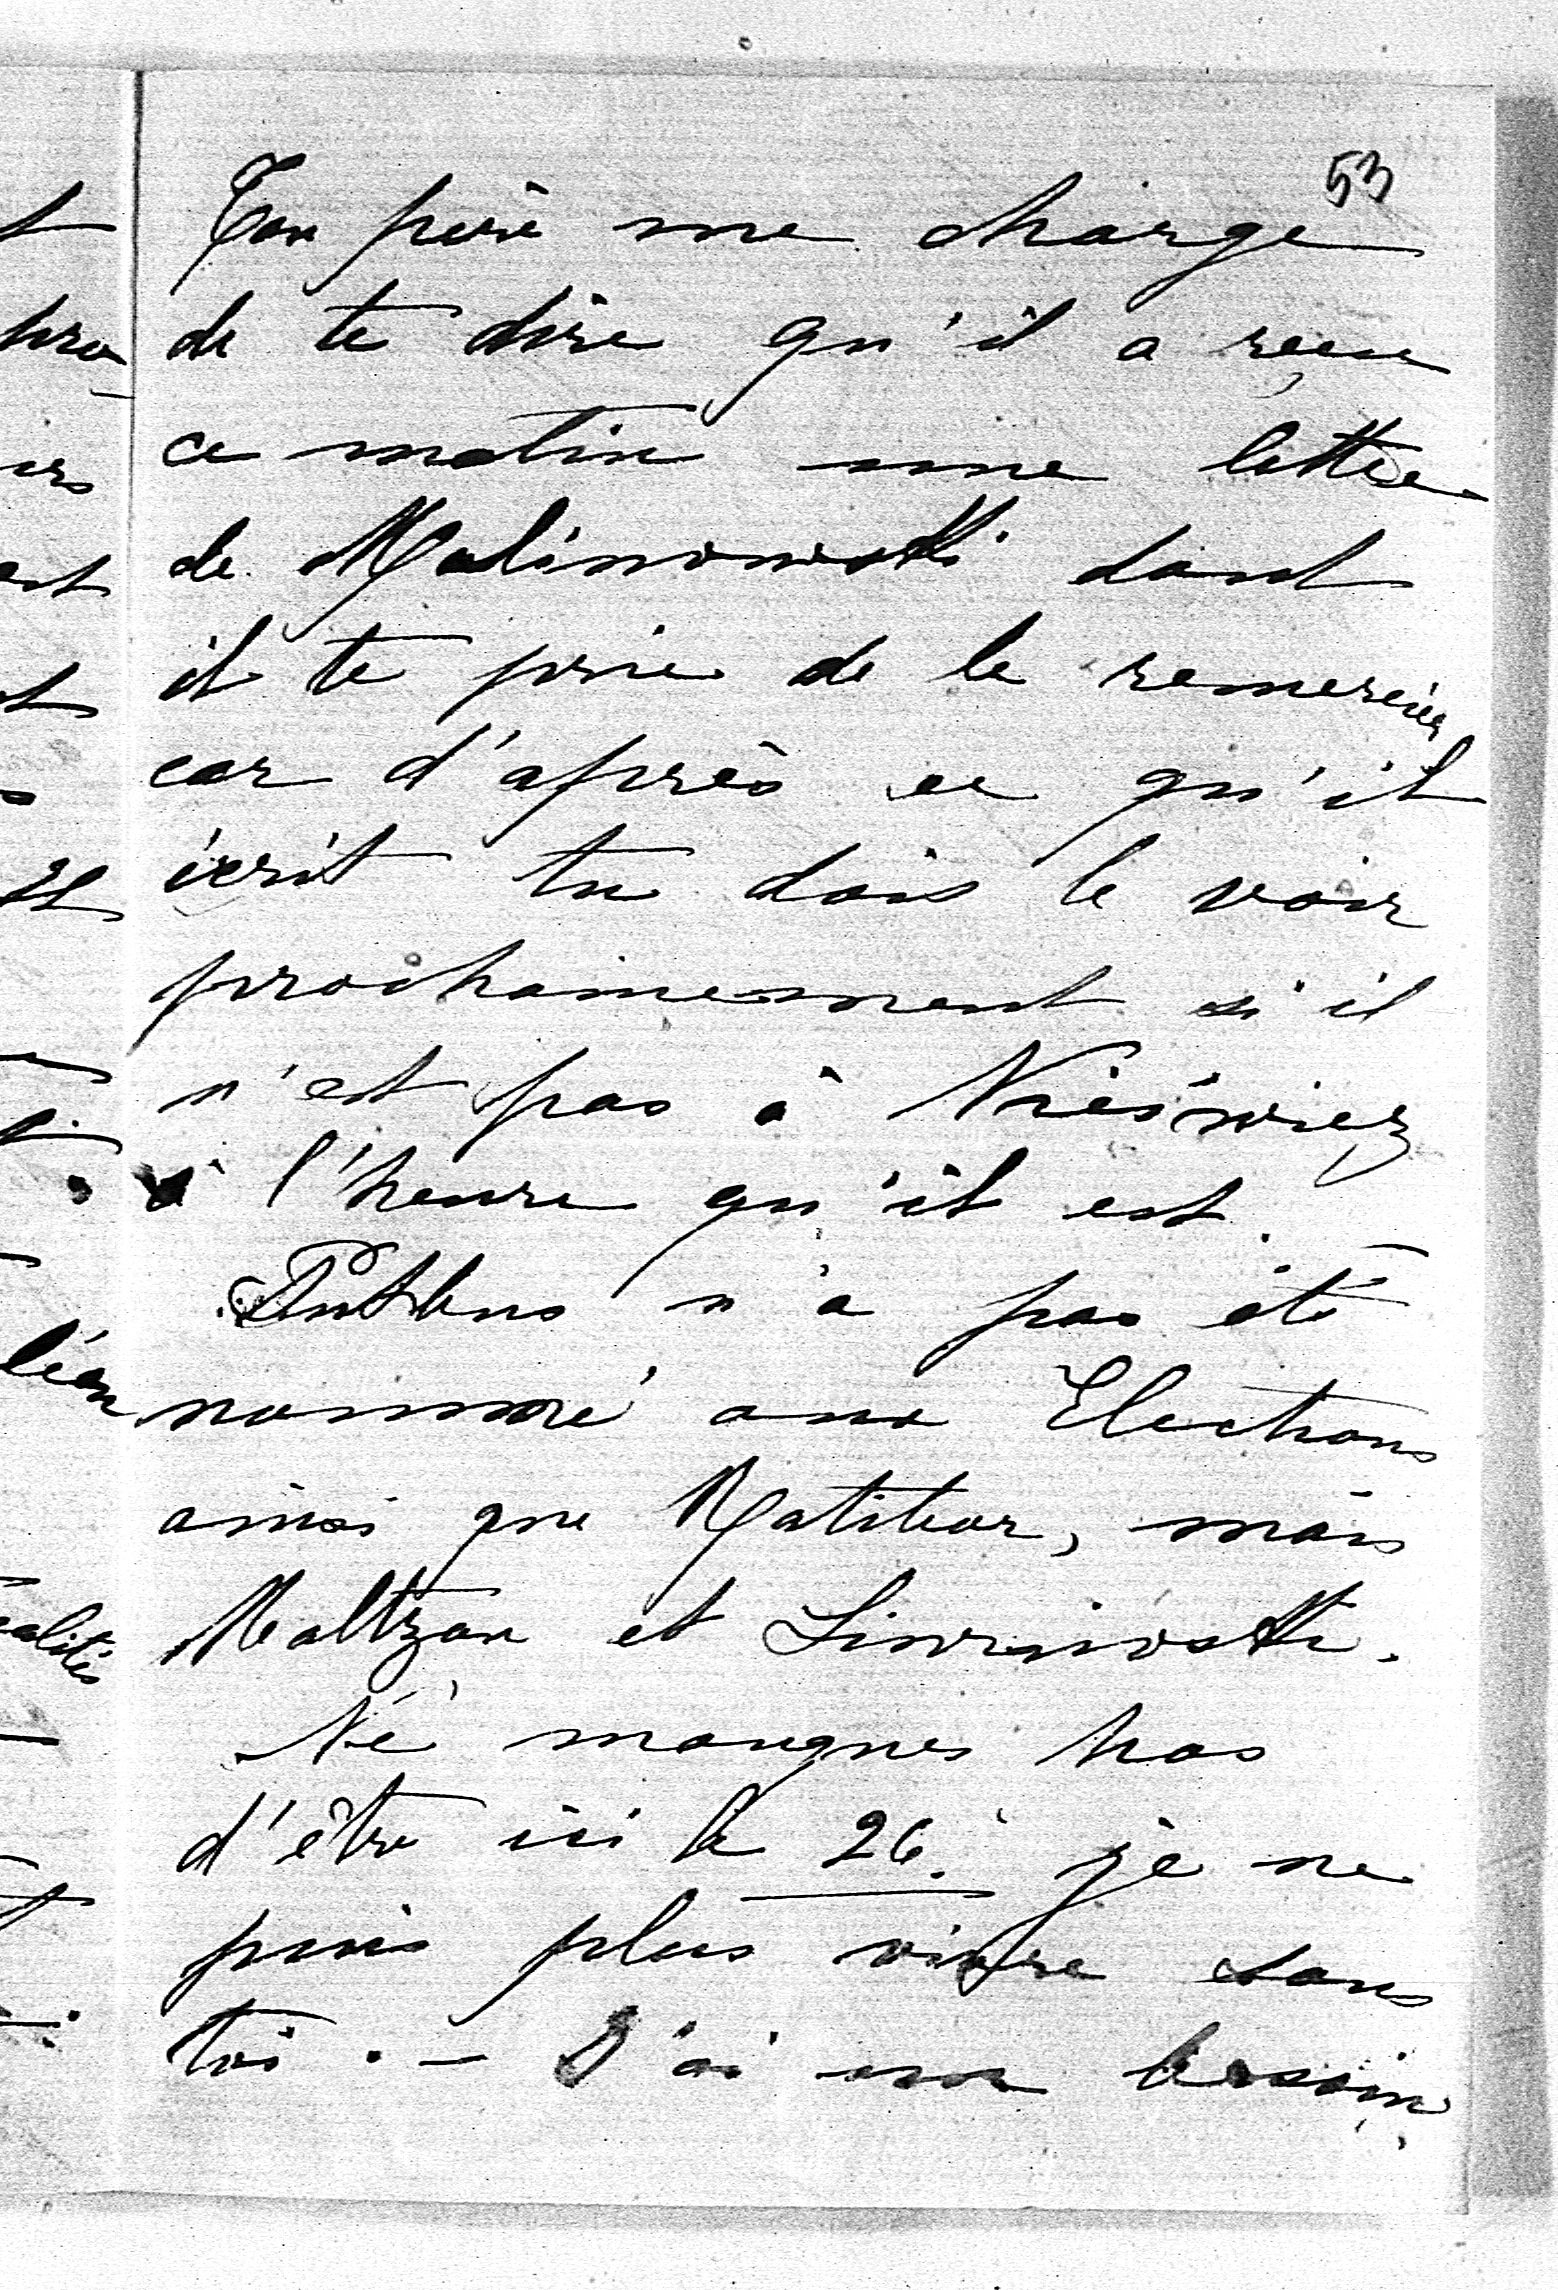 53
Ton père me charge
de te dire qu'il a reçu
ce matin une lettre
de Malinowski dont
il te prie de le remercier
car d'après ce qu'il
écrit tu dois le voir
prochainement s'il
n'est pas à Nieświez
à l'heure qu'il est.
Putbus n'a pas été
nommé aux Elections
ainsi que Ratibor, mais
Maltzan et
Ne manques pas
d'être ici le 26. je ne
puis plus vivre sans
toi. – J'ai un besoin